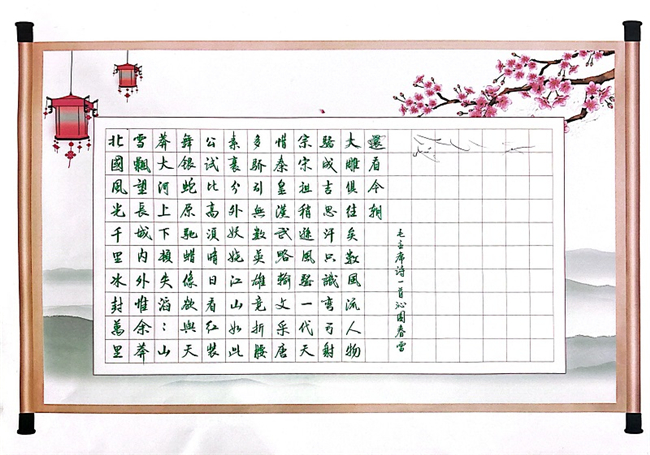 北國風光千里冰封萬里
雪飄望長城內外惟余莽
莽大河上下頓失滔：山
舞银蛇原馳蜡像欲與天
公試比高須晴日看红裝
素裹分外妖娆江山如此
多骄引無數英雄竞折腰
惜秦皇漢武略输文采唐
宗宋祖稍遜風骚一代天
骄成吉思汗只識弯弓射
大雕俱往矣數風流人物
還看今朝
毛主席詩一首沁園春雪